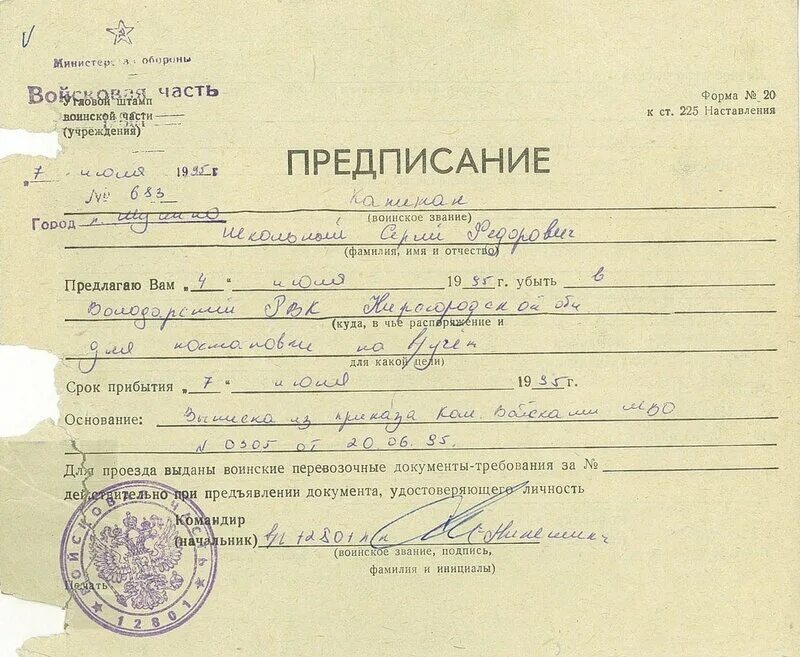 Министерство обороны
Войсковая часть
Угловой штамп
воинской части
(учреждения)
Форма № 20
к ст. 225 Наставления
„7 июля 1995 г
№ 683
Город
ПРЕДПИСАНИЕ
капитан
(воинское звание)
Школьный Сергей Федорович
(фамилия, имя и отчество)
Предлагаю Вам „4“ июля 1995 г. убыть в
Володарский РВК Нижегородской обл
(куда, в чье распоряжение и
для постановки на учёт
для какой цели)
Срок прибытия „7“ июля 1995 г.
Основание: Выписка из приказа Ком. Войсками МВО
N 0305 от 20.06.95.
Для проезда выданы воинские перевозочные документы-требования за №
действительно при предъявлении документа, удостоверяющего личность
Командир
(начальник) 12801
(воинское звание, подпись,
фамилия и инициалы)
Печать
ВОЙСКОВАЯ ЧАСТЬ
12801